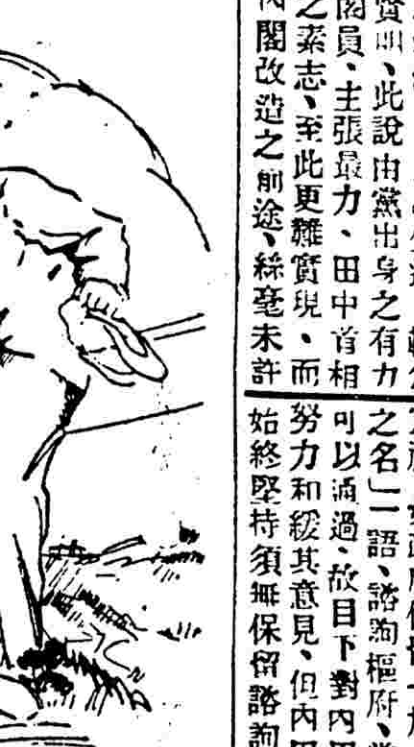 明、此說由黨出身之有力
閣員、主張最力、田中首相
之素志、至此更難實現、而
閣改造之前途、絲毫未許
之名」一語、諮詢樞府、
可以通過、故目下對內
努力和緩其意見、但內
始終堅持須無保留諮詢